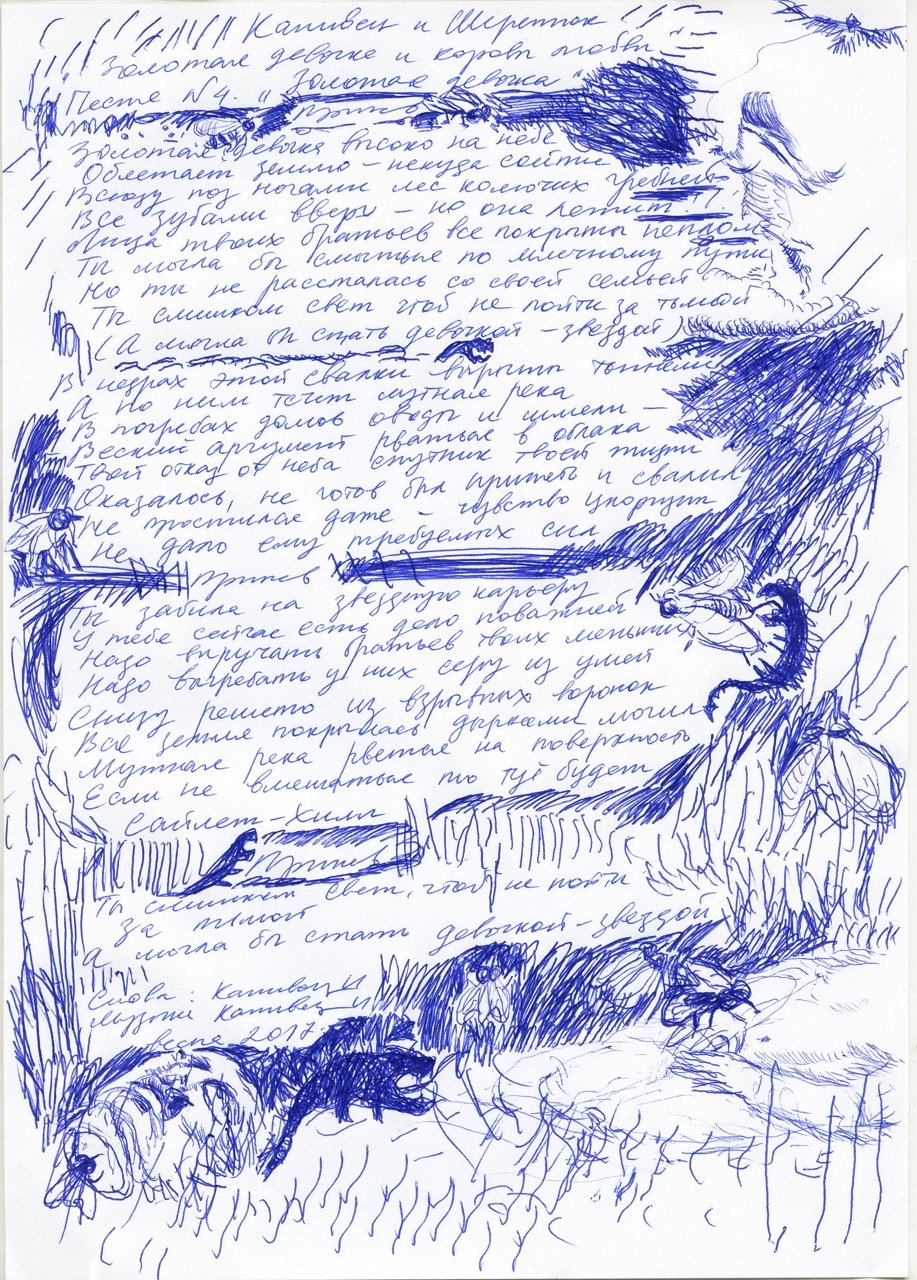 Кашивец и Шреттюк
"Золотая девочка и корова любви"
Песня №4. "Золотая девочка"
Припев
Золотая девочка высоко на небе
Облетает землю – некуда сойти
Всюду под ногами лес колючих гребней
Все зубами вверх – но она летит!!!
Лица твоих братьев все покрыты пеплом
Ты могла бы смыться по млечному пути
Но ты не рассталась со своей семьей
Ты слишком свет чтоб не пойти за тьмой
(А могла бы стать девочкой – звездой)
В недрах этой свалки вырыты тоннели
А по ним течет мутная река
В погребах домов оводы и шмели –
Веский аргумент рваться в облака –
Твой отказ от неба спутник твоей жизни
Оказалось, не готов был принять и свалил
Не простился даже – чувство укоризны
Не дало ему требуемых сил
Припев
Ты забила на звездную карьеру
У тебя сейчас есть дело поважней
Надо выручать братьев твоих меньших
Надо выгребать у них серу из ушей
Снизу решето из взрывных воронок
Вся земля покрылась дырками могил
Мутная река рвется на поверхность
Если не вмешаться то тут будет
Сайлет-Хилл
Припев
Ты слишком свет, чтоб не пойти
за тьмой
А могла бы стать девочкой-звездой
Слова: Кашивец И
Музыка Кашивец И
весна 2017